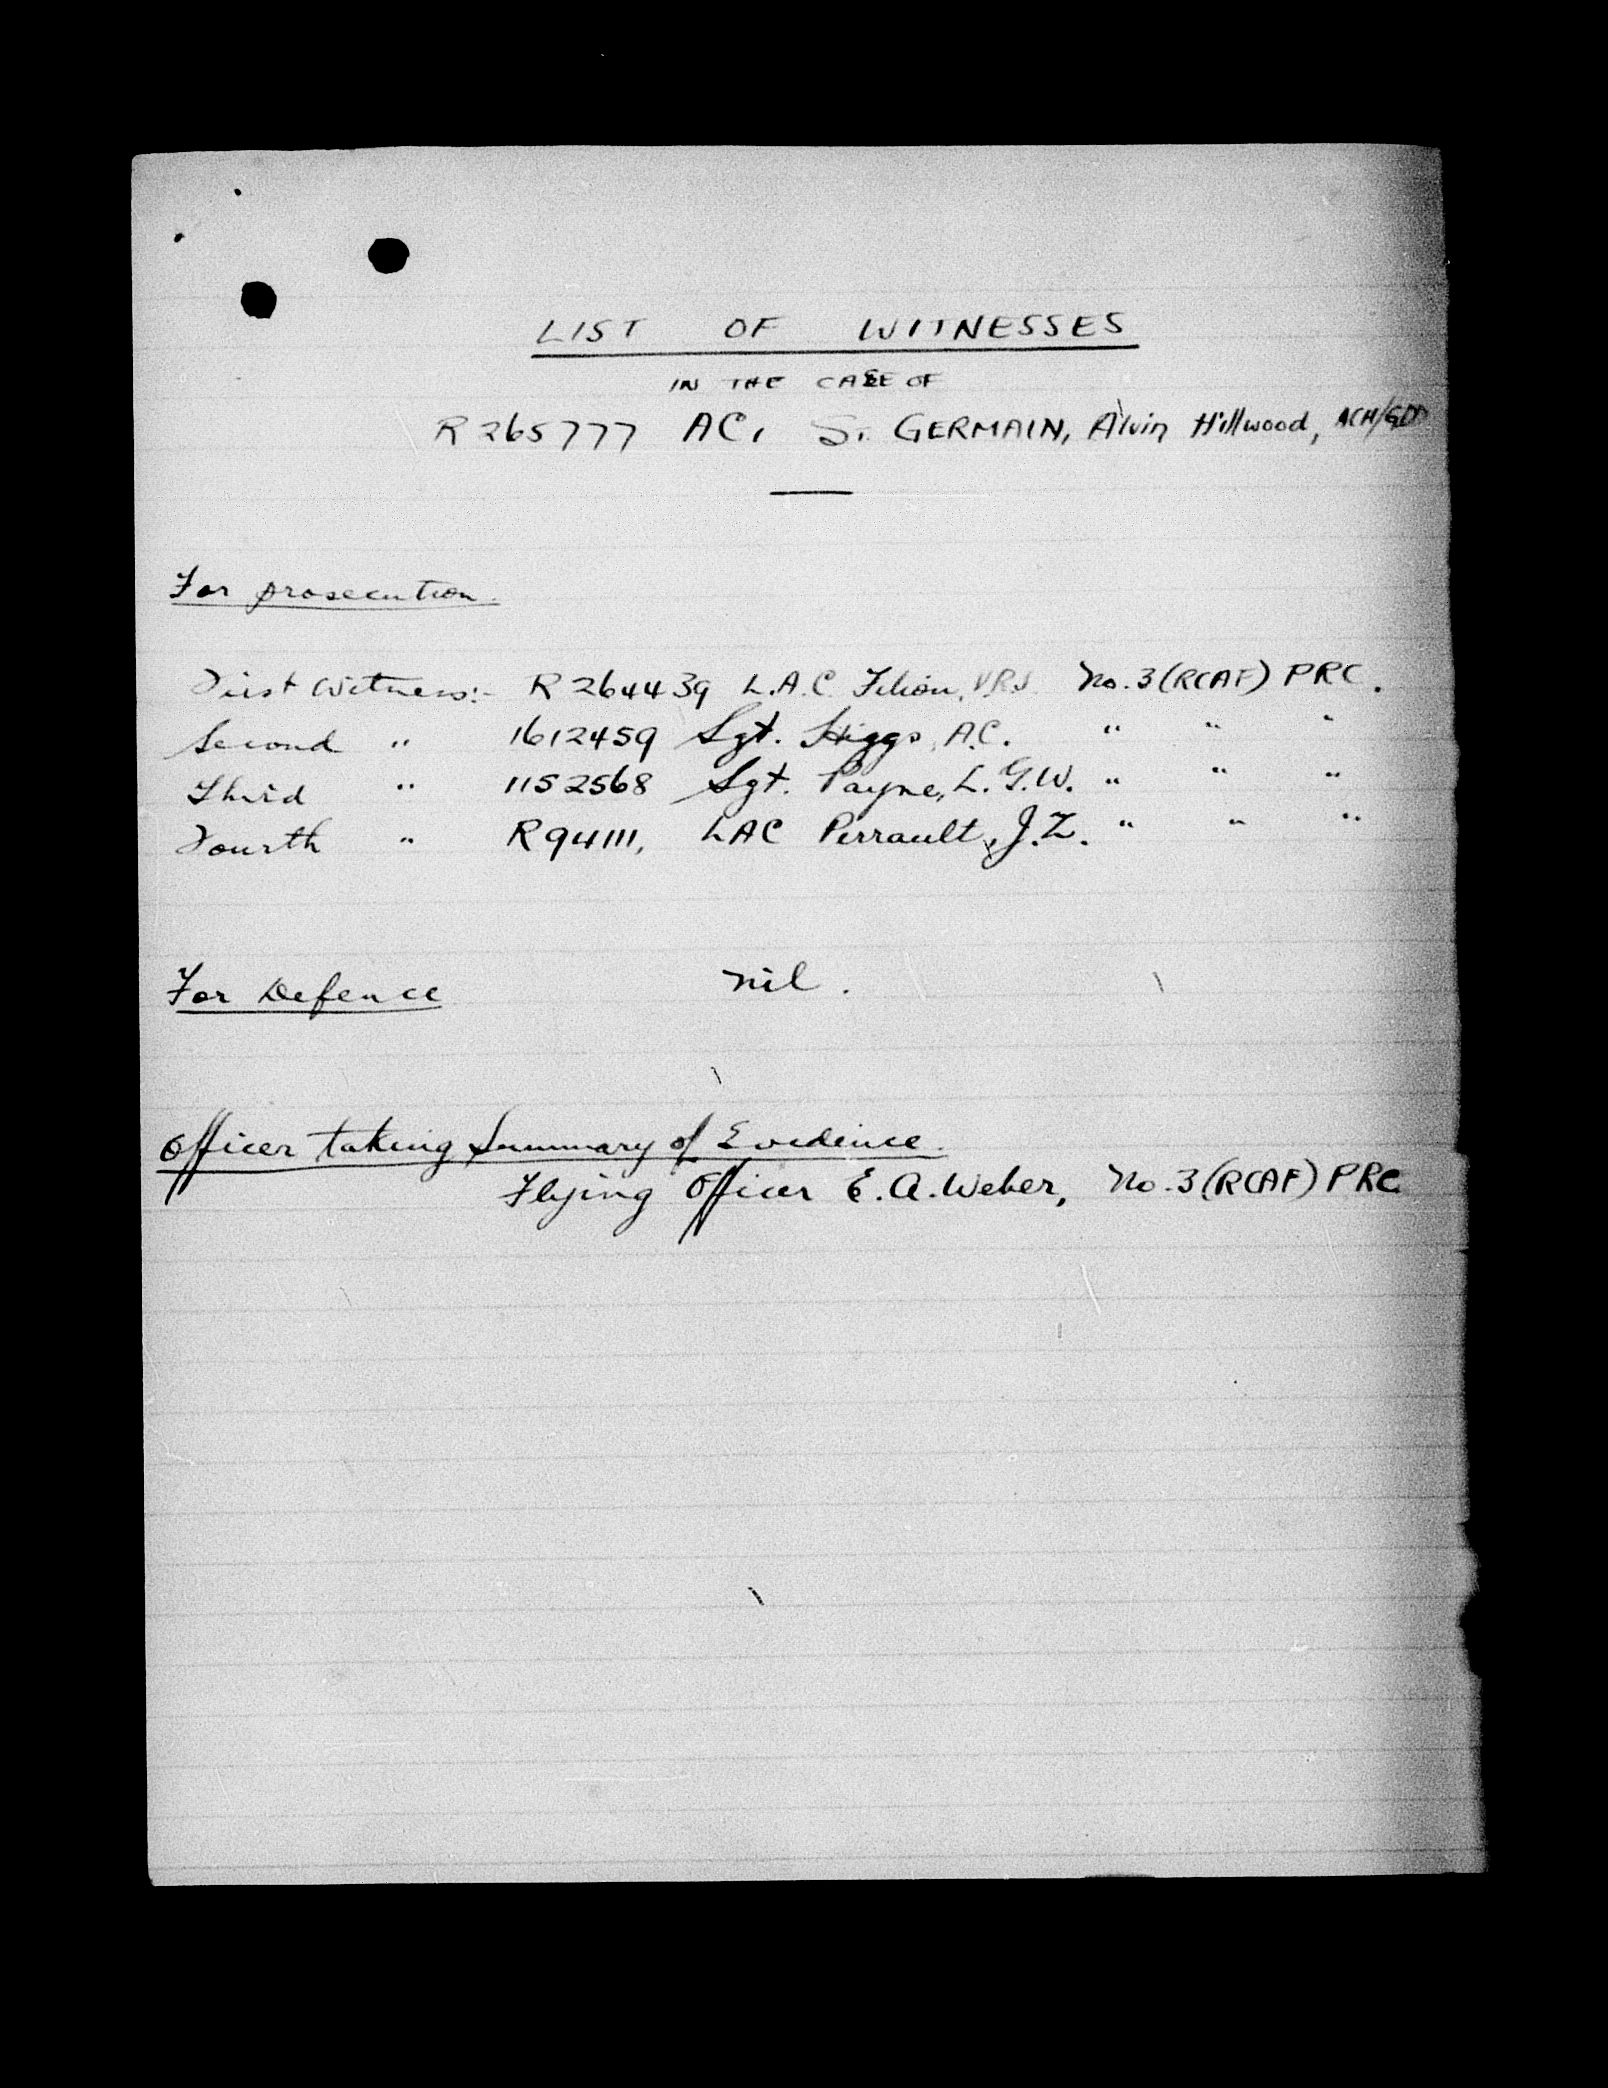 LIST OF WITNESSES
IN THE CASE OF
R265777 AC, St. GERMAIN, Alvin Hillwood, ACH/GD
For prosecution.
First Witness:- R264439 L.A.C Filion, No. 3 (RCAF) PRC.
Second " 1612459 Sgt. Higgs, A.C. " " "
Third " 1152568 Sgt. Payne, L.G.W. " " "
Fourth " R94111, LAC Perrault, J.Z. " " "
For Defence nil.
Officer taking Summary of Evidence.
Flying Officer E.A. Weber, No. 3 (RCAF) PRC